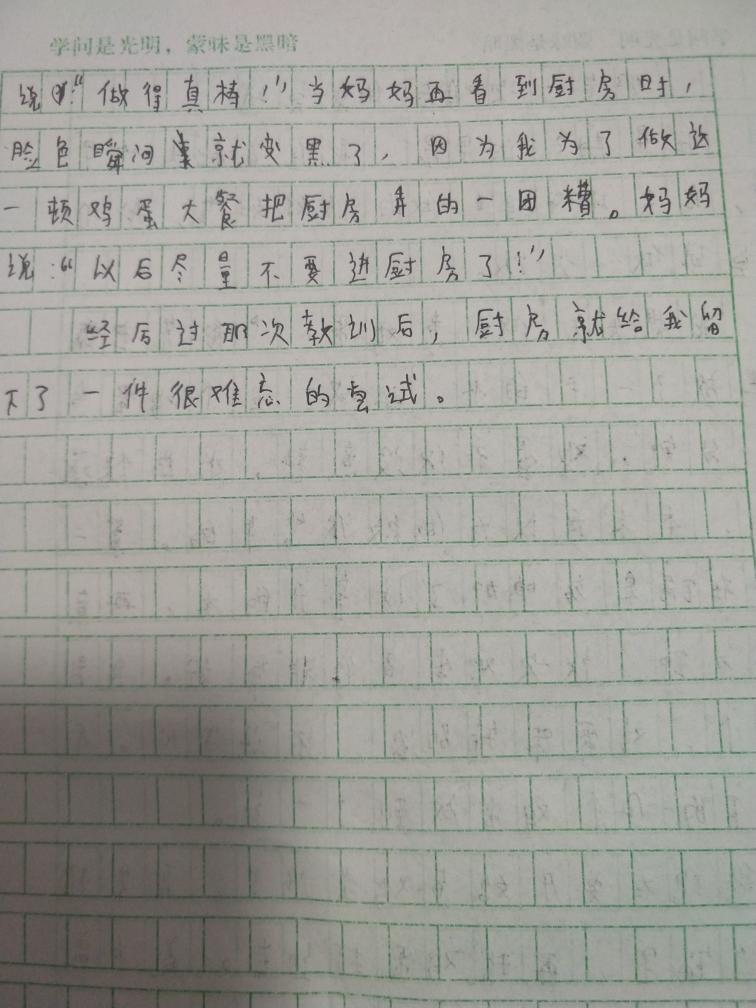 学问是光明，蒙昧是黑暗
说：“做得真棒！”当妈妈再看到厨房时，
脸色瞬间就变黑了，因为我为了做这
一顿鸡蛋大餐把厨房弄的一团糟。妈妈
说：“以后尽量不要进厨房了！”
经历过那次教训后，厨房就给我留
下了一件很难忘的尝试。